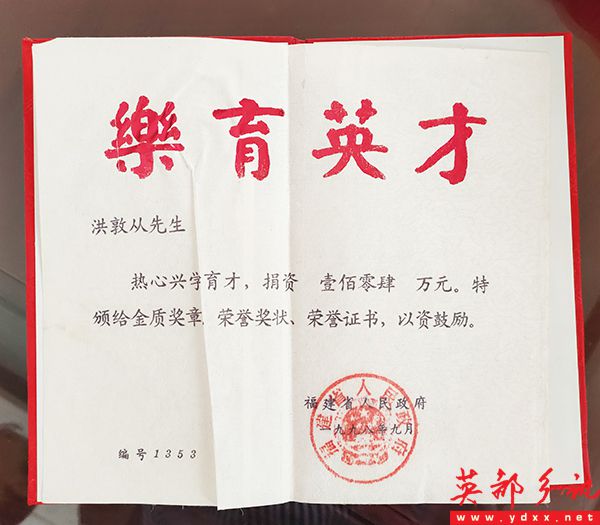 樂育英才
洪敦从先生
热心兴学育才，捐资 壹佰零肆 万元。特
颁给金质奖章、荣誉奖状、荣誉证书，以资鼓励。
福建省人民政府
一九九八年九月
福建省人民政府
编号1353
英都乡讯
www.ydxx.net